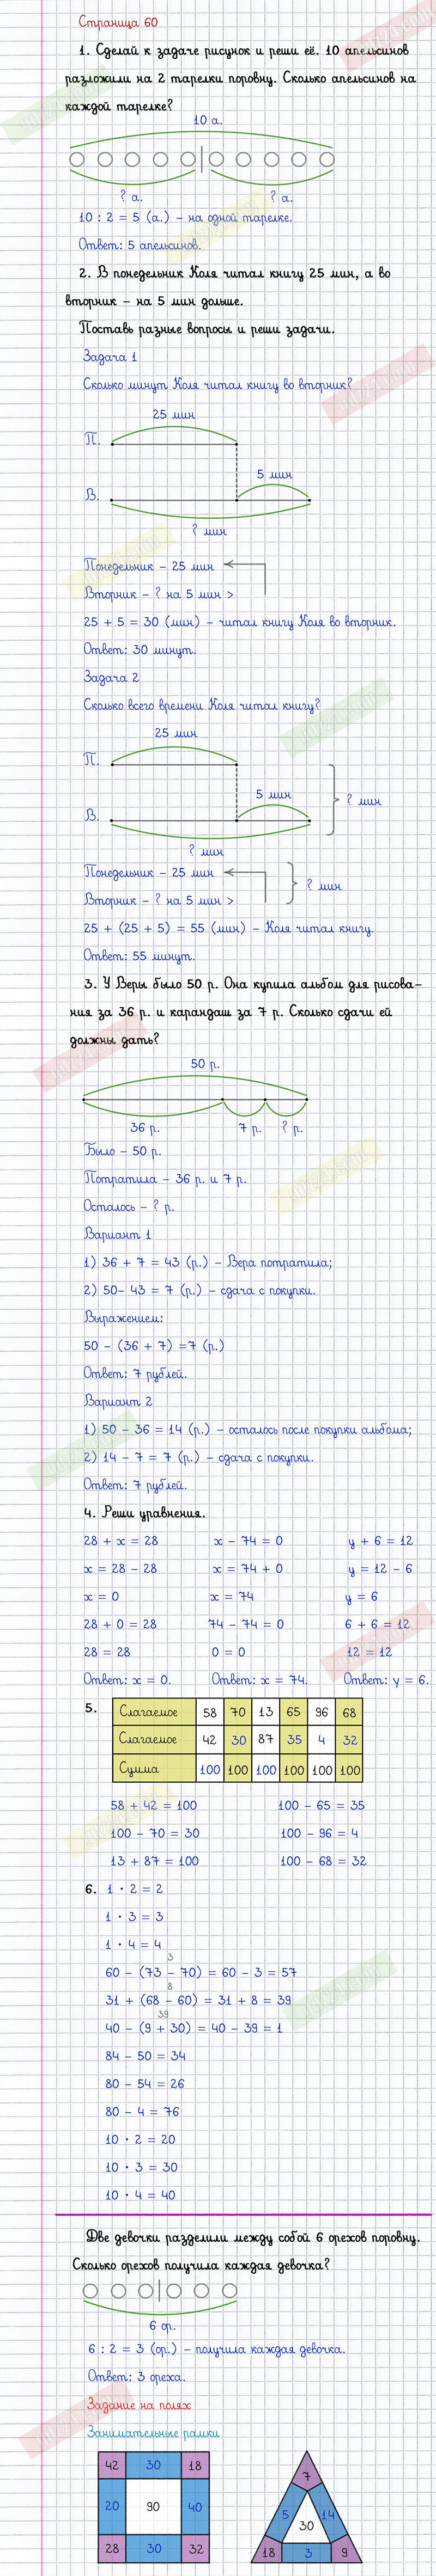 Страница 60
1. Сделай к задаче рисунок и реши её. 10 апельсинов
разложили на 2 тарелки поровну. Сколько апельсинов на
каждой тарелке?
10 а.
? а. ? а.
10 : 2 = 5 (а.) – на одной тарелке.
Ответ: 5 апельсинов.
2. В понедельник Коля читал книгу 25 мин, а во
вторник – на 5 мин дольше.
Поставь разные вопросы и реши задачи.
Задача 1
Сколько минут Коля читал книгу во вторник?
25 мин
П.
5 мин
В.
? мин
Понедельник – 25 мин
Вторник – ? на 5 мин >
25 + 5 = 30 (мин) – читал книгу Коля во вторник.
Ответ: 30 минут.
Задача 2
Сколько всего времени Коля читал книгу?
25 мин
П.
5 мин
? мин
В.
? мин
Понедельник – 25 мин
? мин
Вторник – ? на 5 мин >
25 + (25 + 5) = 55 (мин) – Коля читал книгу.
Ответ: 55 минут.
3. У Веры было 50 р. Она купила альбом для рисова-
ния за 36 р. и карандаш за 7 р. Сколько сдачи ей
должны дать?
50 р.
36 р. 7 р. ? р.
Было – 50 р.
Потратила – 36 р. и 7 р.
Осталось – ? р.
Вариант 1
1) 36 + 7 = 43 (р.) – Вера потратила;
2) 50– 43 = 7 (р.) – сдача с покупки.
Выражением:
50 – (36 + 7) =7 (р.)
Ответ: 7 рублей.
Вариант 2
1) 50 – 36 = 14 (р.) – осталось после покупки альбома;
2) 14 – 7 = 7 (р.) – сдача с покупки.
Ответ: 7 рублей.
4. Реши уравнения.
28 + х = 28 х – 74 = 0 у + 6 = 12
х = 28 – 28 х = 74 + 0 у = 12 – 6
х = 0 х = 74 у = 6
28 + 0 = 28 74 – 74 = 0 6 + 6 = 12
28 = 28 0 = 0 12 = 12
Ответ: х = 0. Ответ: х = 74. Ответ: у = 6.
5. Слагаемое 58 70 13 65 96 68
Слагаемое 42 30 87 35 4 32
Сумма 100 100 100 100 100 100
58 + 42 = 100 100 – 65 = 35
100 – 70 = 30 100 – 96 = 4
13 + 87 = 100 100 – 68 = 32
6. 1 · 2 = 2
1 · 3 = 3
1 · 4 = 4
3
60 – (73 – 70) = 60 – 3 = 57
8
31 + (68 – 60) = 31 + 8 = 39
39
40 – (9 + 30) = 40 – 39 = 1
84 – 50 = 34
80 – 54 = 26
80 – 4 = 76
10 · 2 = 20
10 · 3 = 30
10 · 4 = 40
Две девочки разделили между собой 6 орехов поровну.
Сколько орехов получила каждая девочка?
6 ор.
6 : 2 = 3 (ор.) – получила каждая девочка.
Ответ: 3 ореха.
Задание на полях
Занимательные рамки
42 30 18
20 90 40
28 30 32
7
5 14
30
18 3 9